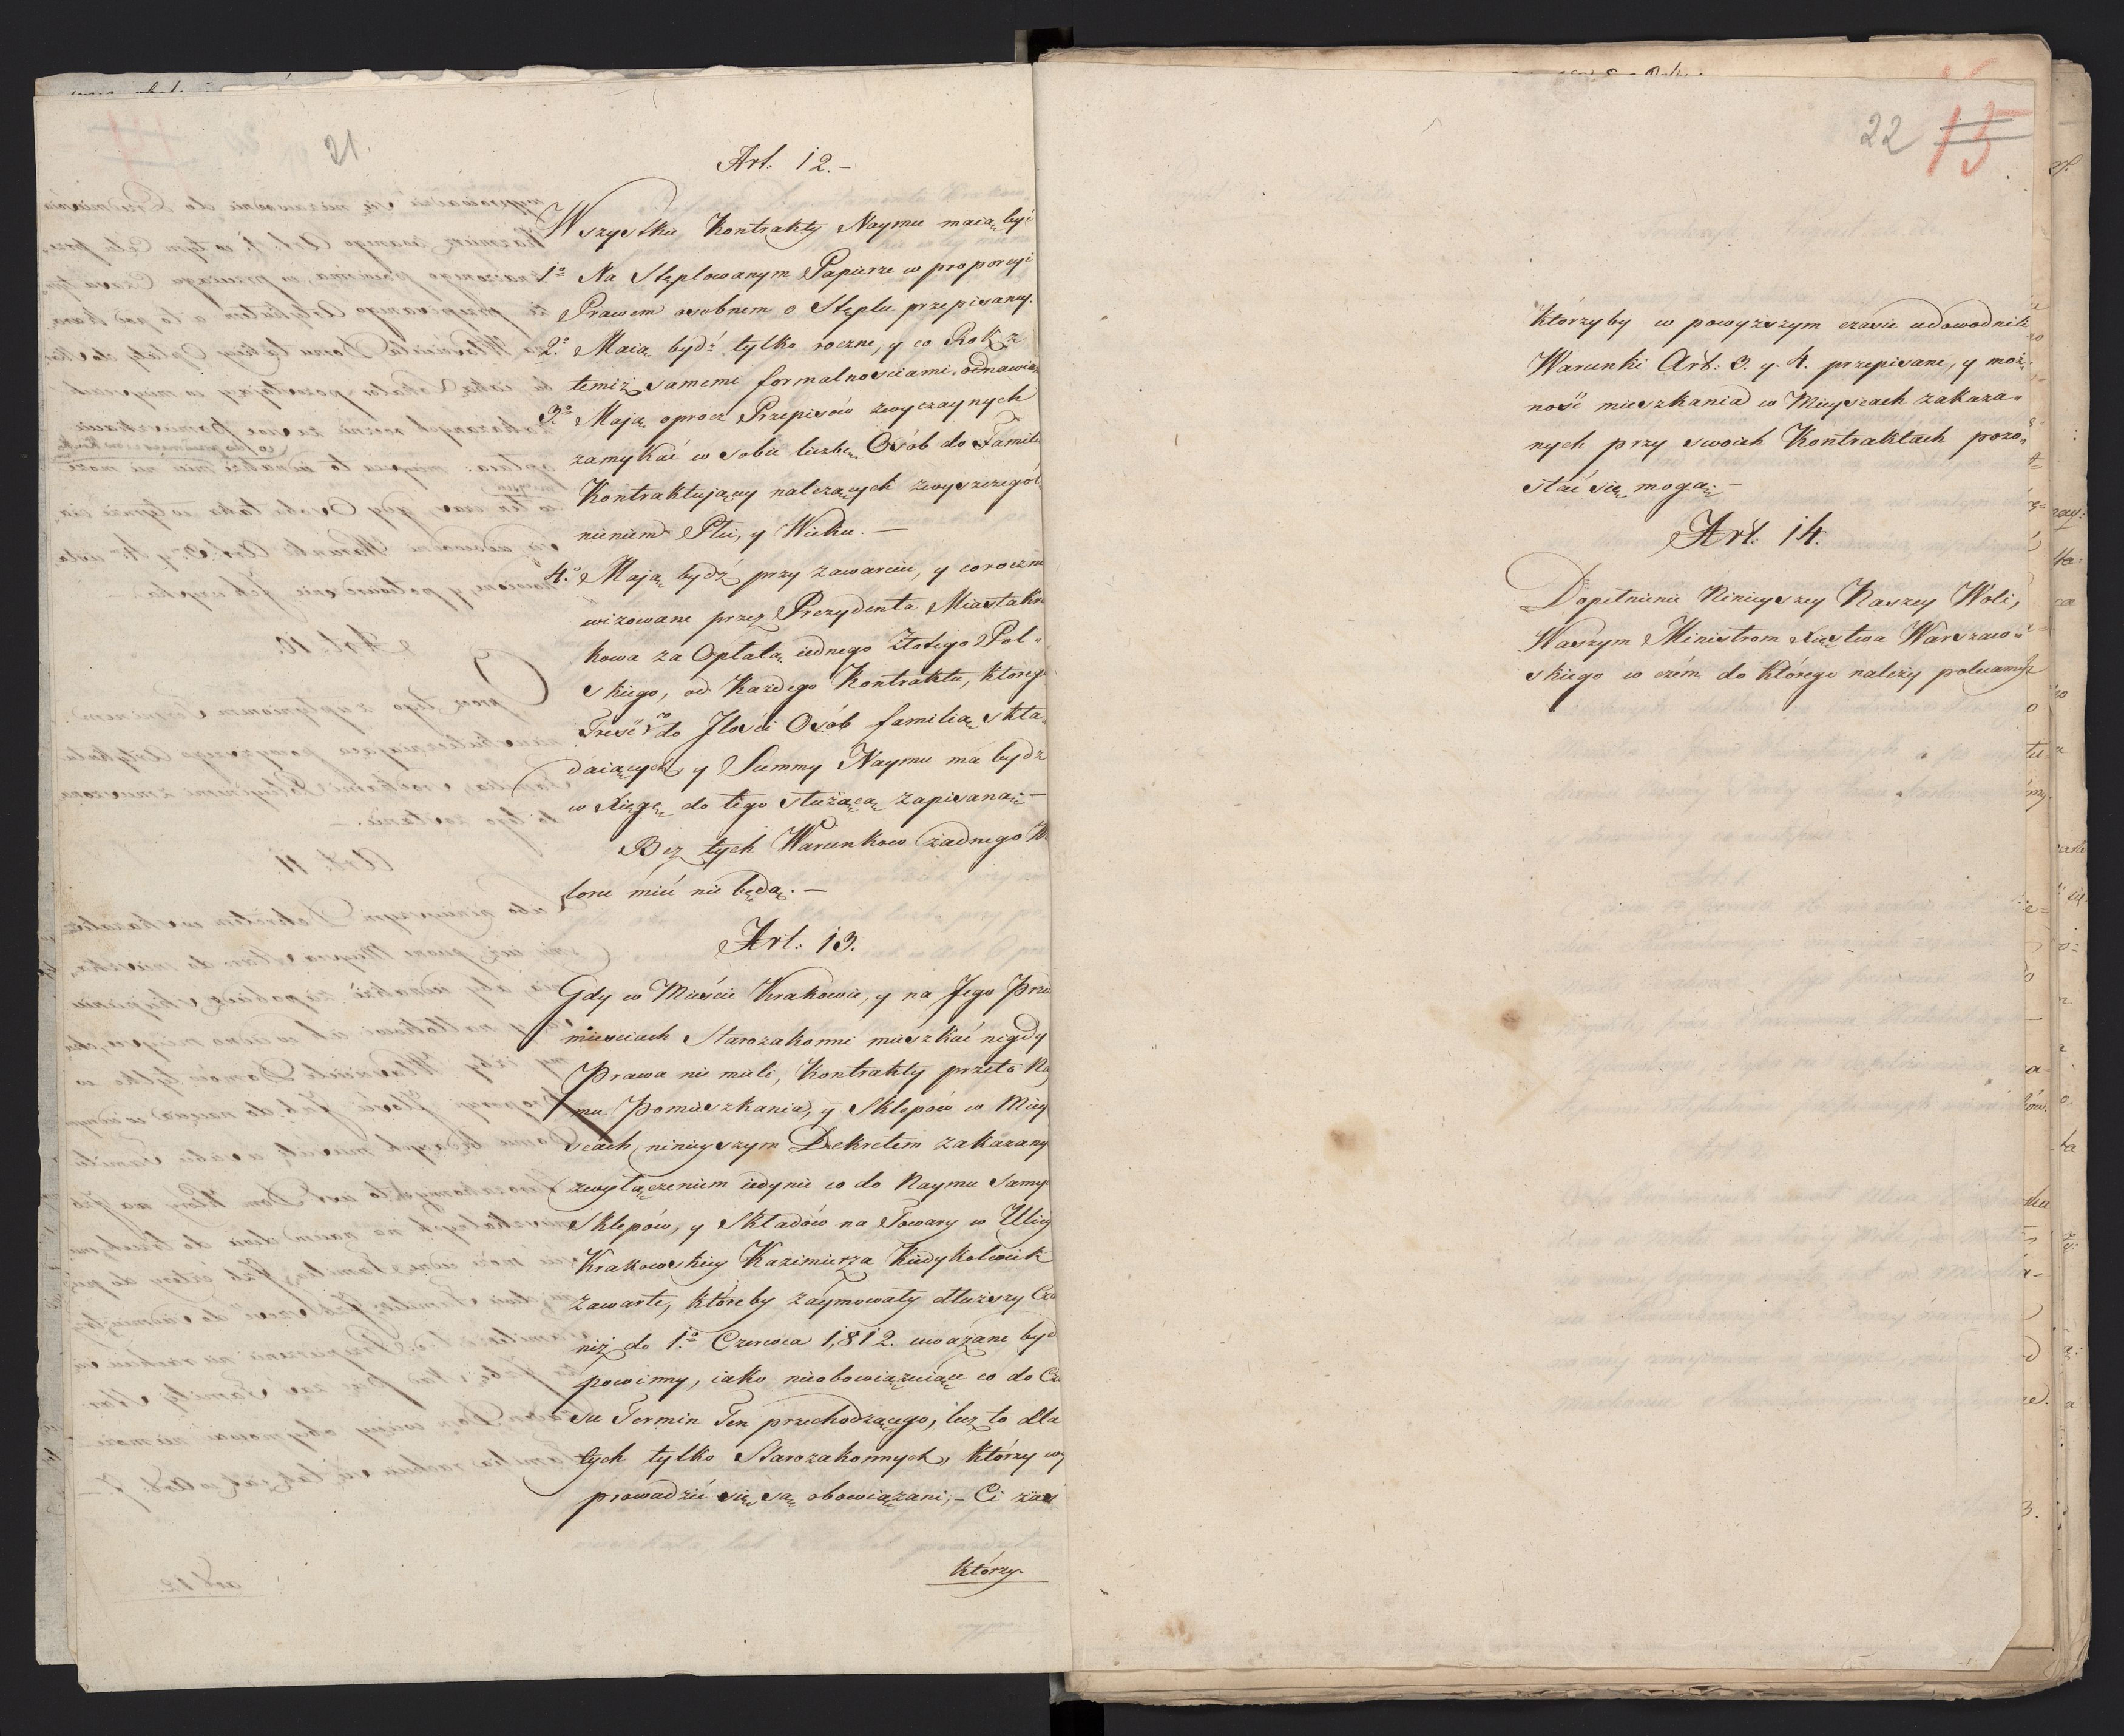 21.
Art. 12.–
Wszystkie Kontrakty Naymu maią być
1º Na Stęplowanym Papierze w proporcyi
Prawem osobnem o Stęplu przepisaney.
2º Maią bydź tylko roczne, y co Rok z
temiż samemi formalnościami odnawian
3º Mają oprocz Przepisów zwyczaynych
zamykać w sobie liczbę Osób do Famili
Kontraktujący należących zwyszczegól„
nieniem Płci, y Wieku. –
4º Mają bydź przy zawarciu, y coroczni
wizowane przez Prezydenta Miasta Kra
kowa za Opłatą iednego Złotego Pol„
skiego, od Każdego Kontraktu, którego
Treść co do Jlości Osób familią skła„
daiących y Summy Naymu ma bydź
w Xięgę do tego służącą zapisaną; –
Bez tych Warunkow żadnego W
loru mieć nie będą. –
Art: 13.
Gdy w Mieście Krakowie, y na Jego Prze
mieściach Starozakonni mieszkać nigdy
Prawa nie mieli, Kontrakty przeto Na
mu Pomieszkania, y Sklepów w Miey
scach ninieyszym Dekretem zakazany
zwyłączeniem iedynie co do Naymu Samy
Sklepów, y Składów na Towary w Ulicy
Krakowskiey Kazimierza Kiedykolwiek
zawarte, któreby zaymowały dłuższy Cza
niż do 1º Czerwca 1812. uważane byd
powinny, iako nieobowiązuiące co do Cza
su Termin Ten przechodzącego, lecz to dla
tych tylko Starozakonnych, którzy wy
prowadzić się są obowiązani, – Ci zaś
którzy.
22 15
Którzyby w powyższym czasie udowodnili
Warunki Art: 3. y. 4. przepisane, y moż„
ność mieszkania w Mieyscach zakaza„
nych przy swoich Kontraktach pozo„
stać się mogą; –
Art: 14.
Dopełnienie Ninieyszey Naszey Woli,
Naszym Ministrom Xięstwa Warszaw„
skiego w czém do którego należy polecamy